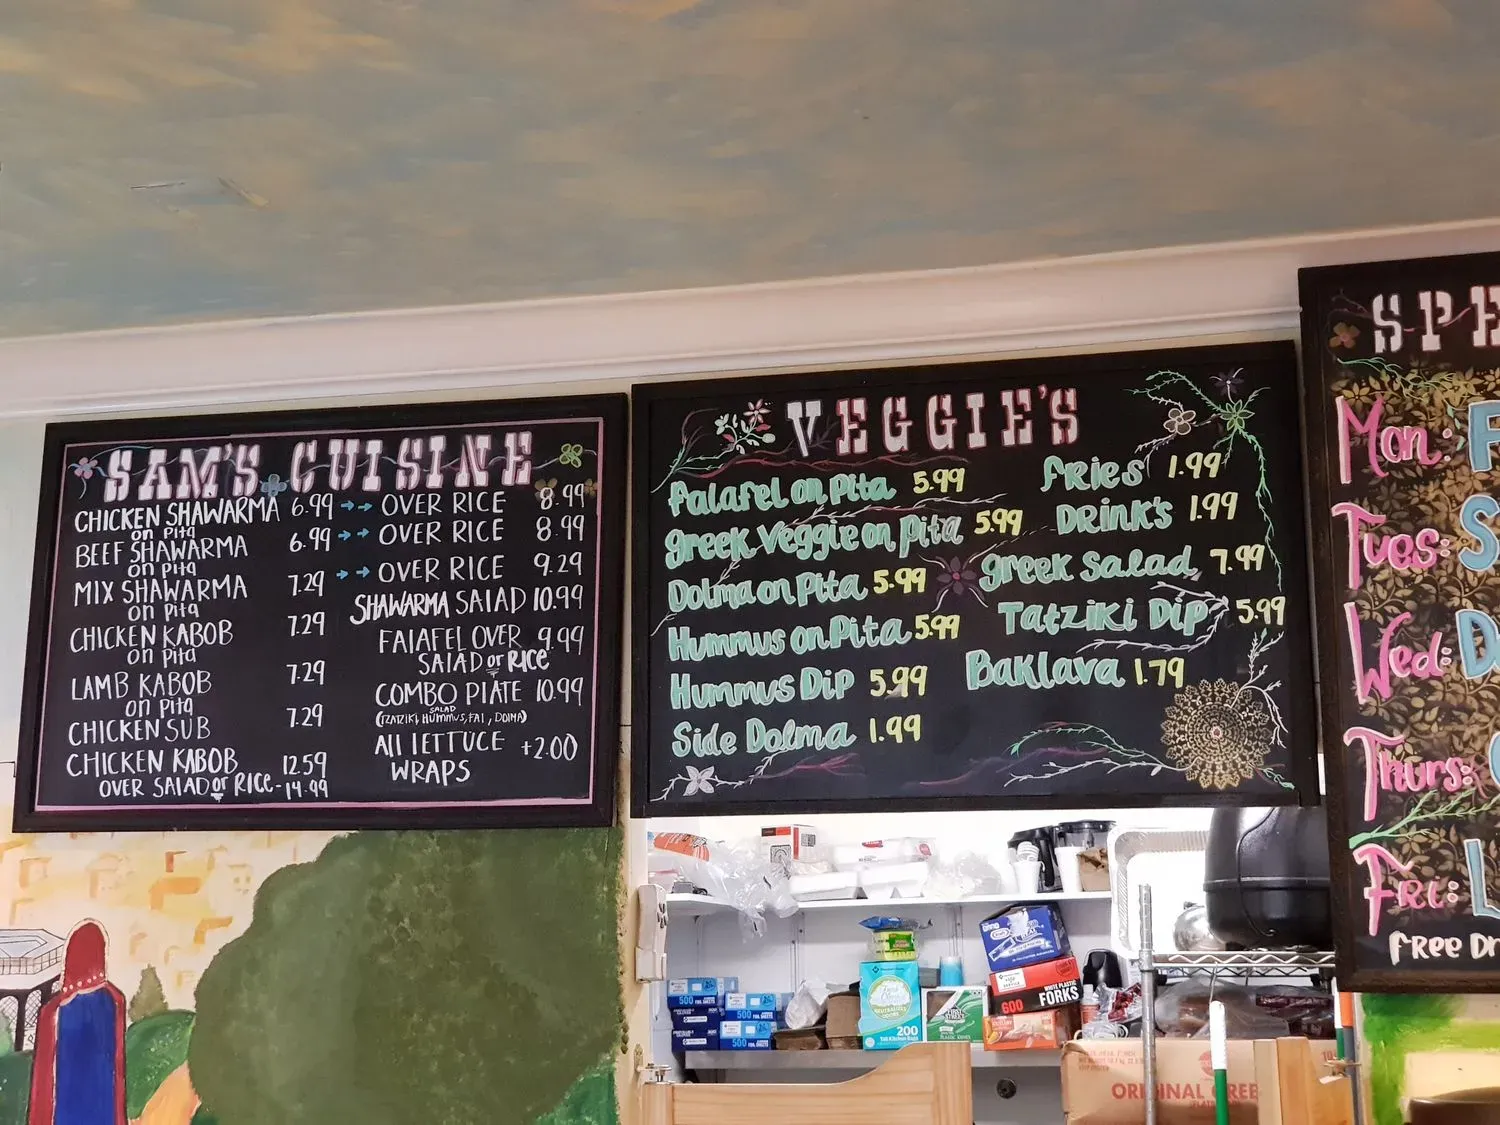 SAM'S CUISINE
CHICKEN SHAWARMA 6.99 →→ OVER RICE 8.99
on pita
BEEF SHAWARMA 6.99 →→ OVER RICE 8.99
on pita
MIX SHAWARMA 7.29 →→ OVER RICE 9.29
on pita
CHICKEN KABOB 7.29
on pita
LAMB KABOB 7.29
on pita
CHICKEN SUB 7.29
CHICKEN KABOB 12.59
OVER SALAD or RICE - 14.99
SHAWARMA SALAD 10.99
FALAFEL OVER 9.99
SALAD or RICE
COMBO PLATE 10.99
SALAD
(TZATZIKI, HUMMUS, FAL, DOLMA)
All LETTUCE +2.00
WRAPS
VEGGIE'S
Falafel on Pita 5.99
Greek Veggie on Pita 5.99
Dolma on Pita 5.99
Hummus on Pita 5.99
Hummus Dip 5.99
Side Dolma 1.99
Fries 1.99
DRINK'S 1.99
Greek Salad 7.99
Tatziki Dip 5.99
Baklava 1.79
SPE
Mon:
Tues:
Wed:
Thurs:
Fri:
FREE Dr
500
500
500
200
600
WHITE PLASTIC
FORKS
ORIGINAL